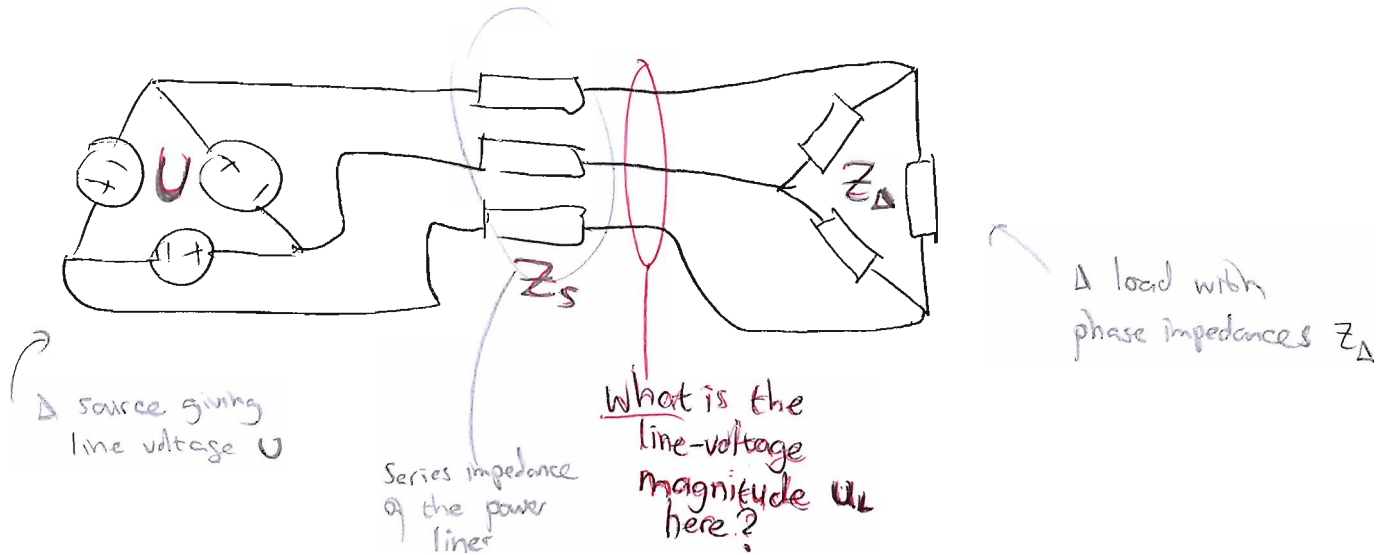 U
Z_Δ
Z_S
Δ source giving
line voltage U
Series impedance
of the power
lines
What is the
line-voltage
magnitude U_L
here?
Δ load with
phase impedances Z_Δ